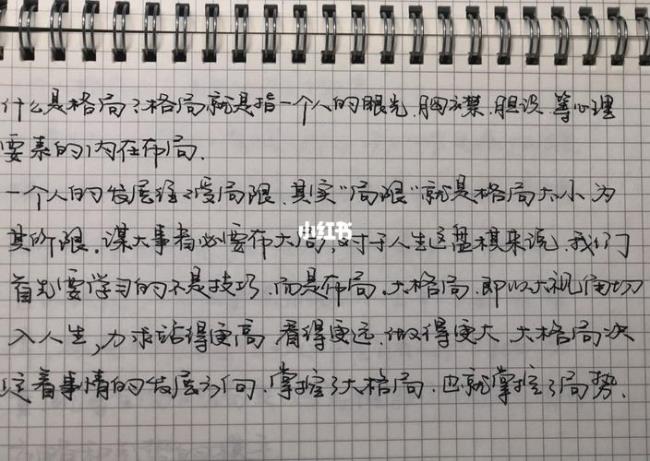 什么是格局?格局就是指一个人的眼光.胸襟.胆识等心理
要素的内在布局.
一个人的发展往往受局限.其实"局限"就是格局太小为
其所限.谋大事者必要布大局,对于人生这盘棋来说.我们
首先要学习的不是技巧.而是布局.大格局.即以大视角切
入人生,力求站得更高 看得更远.做得更大 大格局决
定着事情的发展方向.掌控了大格局.也就掌控了局势.
小红书